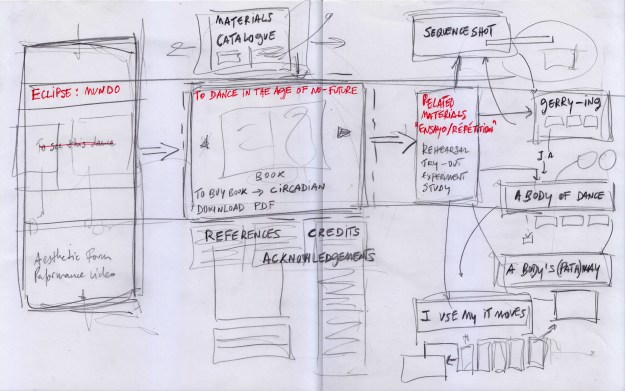 ECLIPSE: MUNDO
To see this dance
Aesthetic Form
Performance video
MATERIALS
CATALOGUE
TO DANCE IN THE AGE OF NO-FUTURE
BOOK
TO BUY BOOK → CIRCADIAN
DOWNLOAD PDF
REFERENCES
CREDITS
ACKNOWLEDGEMENTS
SEQUENCE SHOT
RELATED
MATERIALS
"ENSAYO/REPÉTITION"
REHEARSAL
TRY-OUT
EXPERIMENT
STUDY
GERRY-ING
A BODY OF DANCE
A BODY'S (PATH)WAY
I USE MY IT MOVES